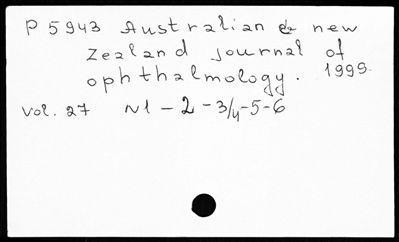 P 5943 Australian & new
Zealand journal of
ophthalmology. 1999.
vol. 27 N1 - 2 - 3/4 - 5 - 6